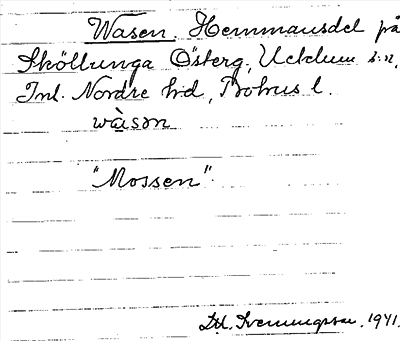 Wasen. Hemmansdel på
Sköllunga Österg., Ucklum s:n,
Inl. Nordre hd, Bohus l.
wàsən
"Mossen"
Svenungsson, 1941.